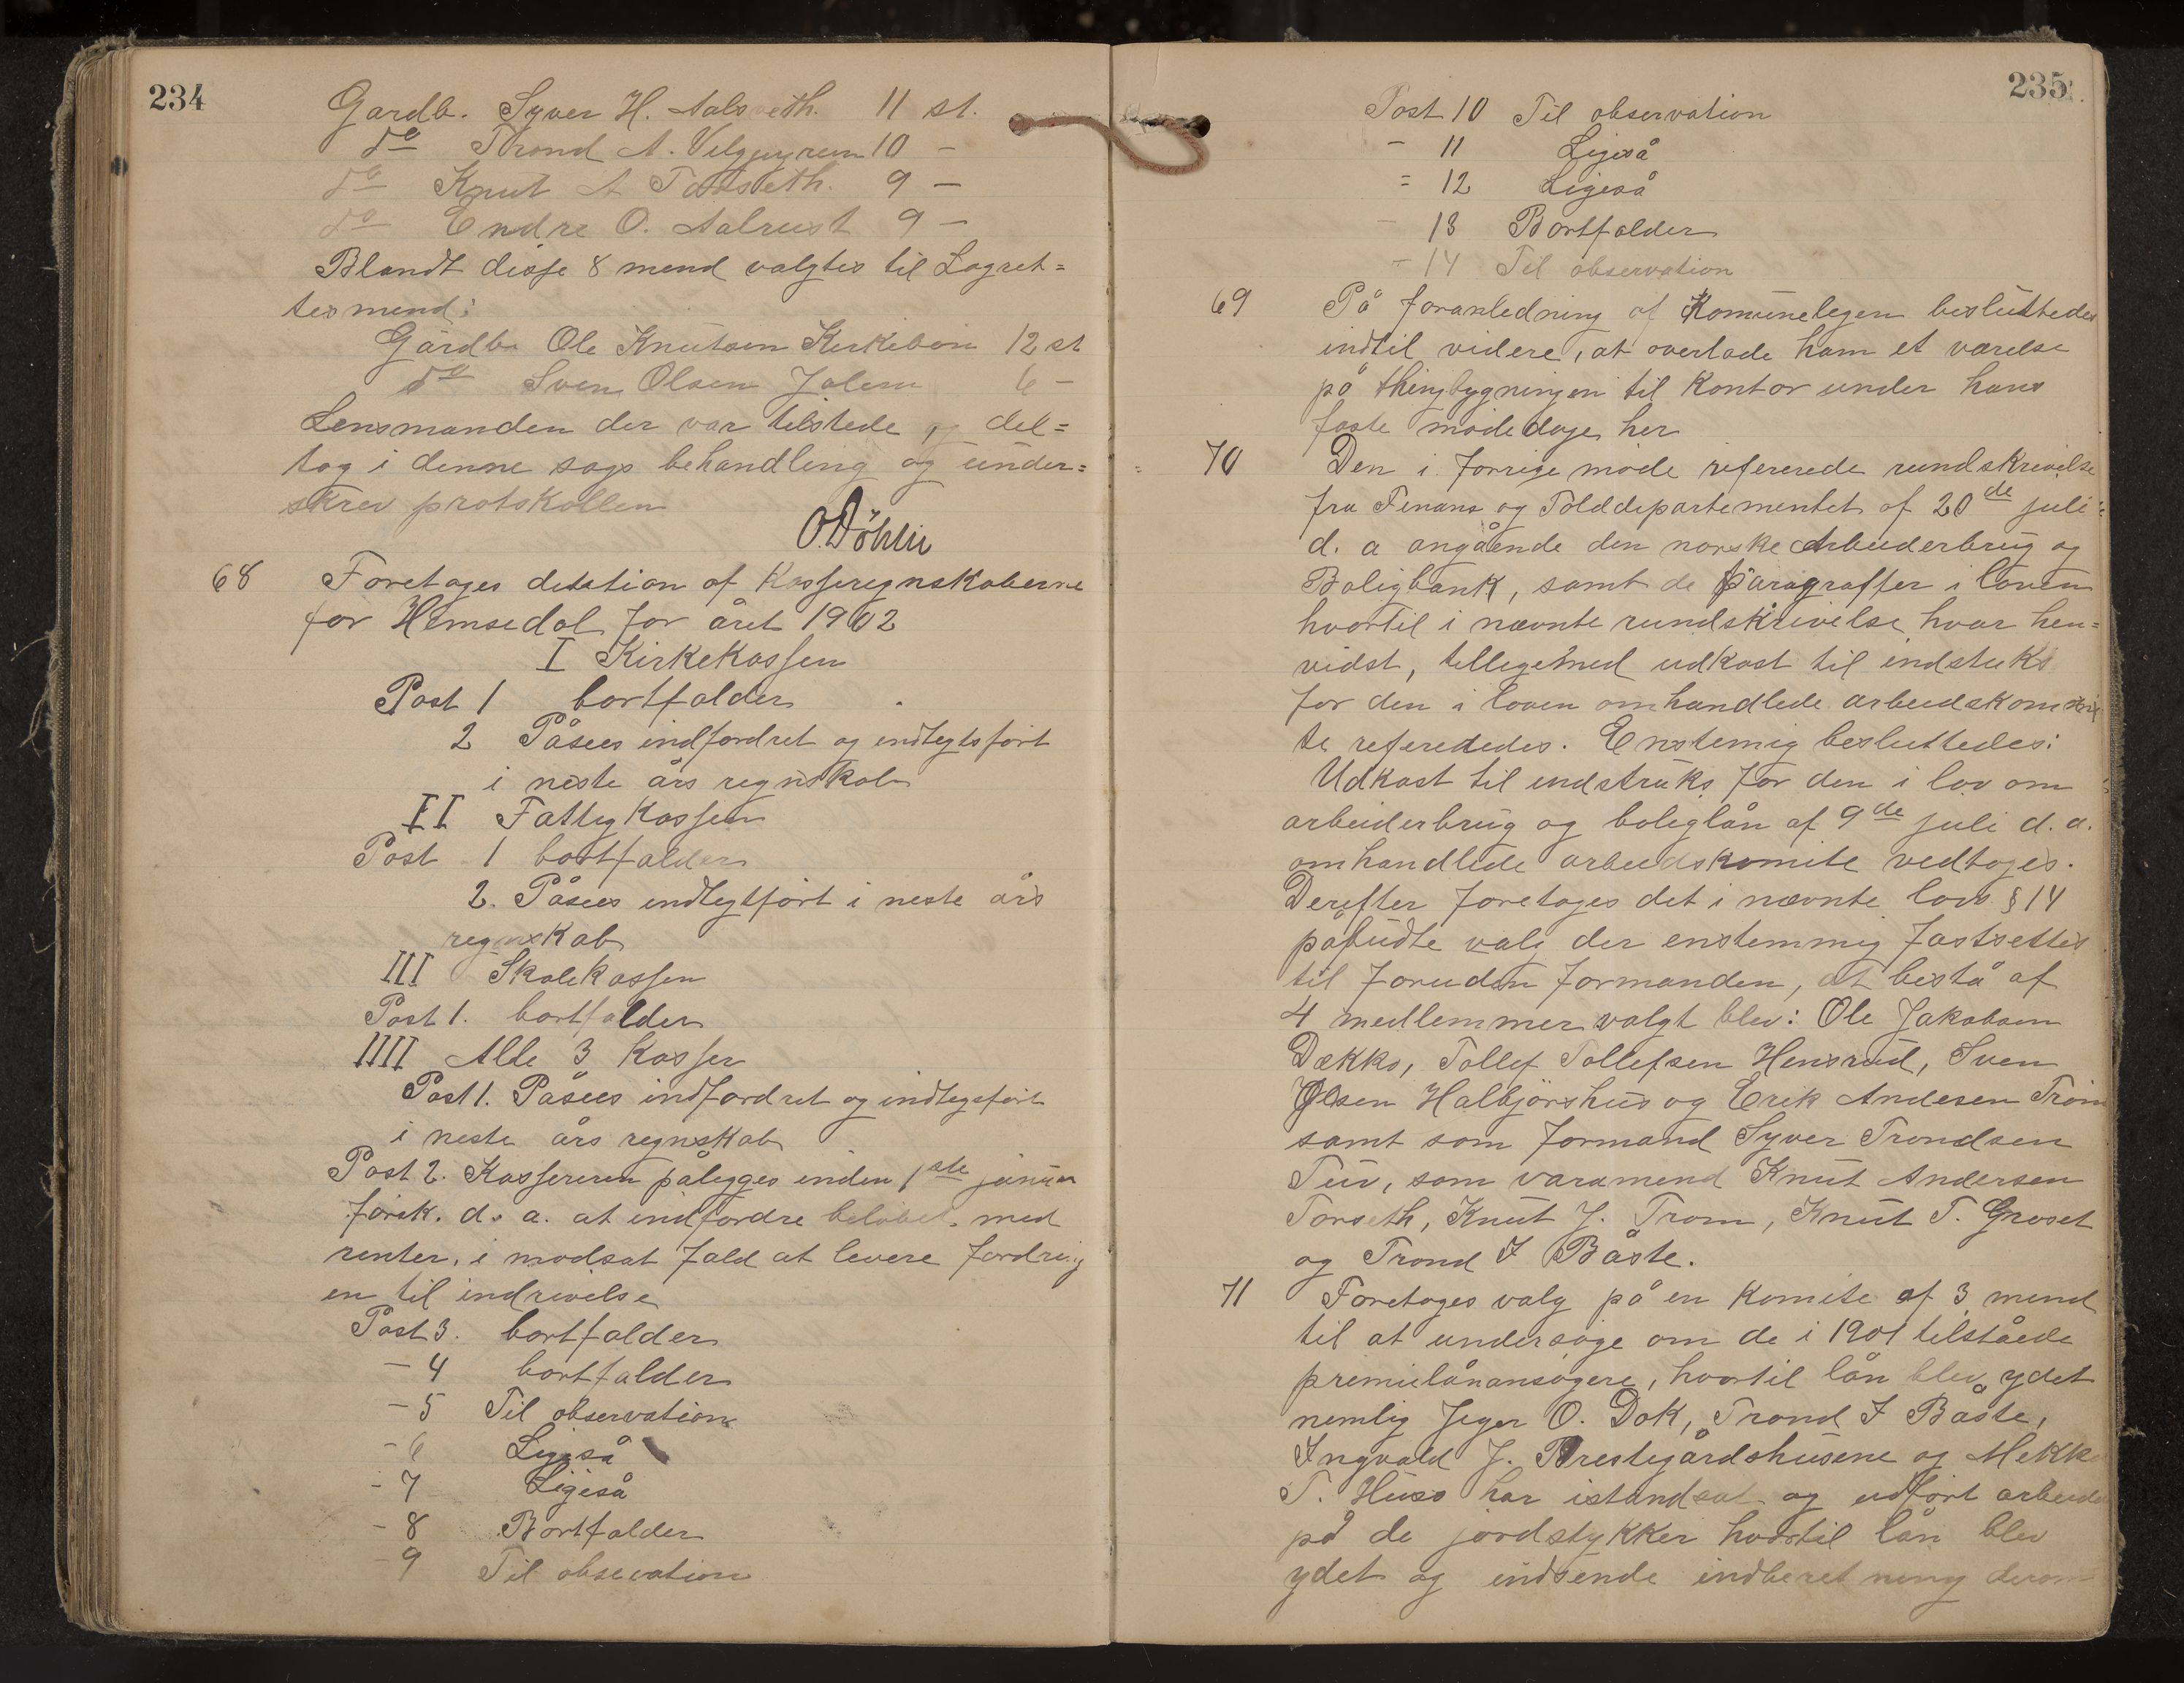 234
Gardb. Syver H. Aalsveth. 11 st.
do Trond A. 10 -
do Knut A Torseth. 9 -
do Endre O. Aalrust 9 -
Blandt disse 8 mend valgtes til Lagret=
tesmend:
Gårdbr Ole Knutsen Kirkebøn 12 st
do Sven Olsen Jalem 6 -
Lensmanden der var tilstede og del=
tog i denne sags behandling og under=
skrev protokollen
O. Döhlie
68 Foretages detation af Kasseregnskaberne
for Hemsedal for året 1902
I Kirkekassen
Post 1 bortfalder
2 Påsees indfordret og indtegtsført
i neste års regnskab
II Fattigkassen
Post 1 bortfalder
2. Påsees indtegtført i neste års
regnskab
III Skolekassen
Post 1. bortfalder
IIII Alle 3 Kasser
Post 1. Påsees indfordret og indtegsført
i neste års regnskab
Post 2. Kassereren pålegges inden 1ste januar
førsk. d. a. at indfordre beløbet med
renter, i modsat fald at levere fordring
en til indrivelse
Post 3. bortfalder
- 4 bortfalder
- 5 Til observation
- 6 Ligeså
- 7 Ligeså
- 8 Bortfalder
- 9 Til obsevation
235
Post 10 Til observation
- 11 Ligeså
= 12 Ligeså
- 13 Bortfalder
- 14 Til observation
69 På foranledning af Komunelegen besluttedes
indtil videre, at overlade ham et værelse
på thingbygningen til Kontor under hans
faste mødedage her
70 Den i forrige møde refererede rundskrivelse
fra Finans og Tolddepartementet af 20de juli
d. a angående den norske Arbeiderbrug og
Boligbank, samt de paragraffer i loven
hvortil i nævnte rundskrivelse hvar hen=
vidst, tilligemed udkast til indstuks
for den i loven omhandlede arbeidskommi
te referededes. Enstemig besluttedes:
Udkast til indstruks for den i lov om
arbeiderbrug og boliglån af 9de juli d. a.
omhandlede arbeidskomite vedtoges.
Derefter foretages det i nævnte lovs § 14
påbudte valg der enstemmig fastsettes
til foruden formanden, at bestå af
4 medlemmer valgt blev: Ole Jakobsen
Dække, Tollef Tollefsen Hensrud, Sven
Olsen Halbjørshus og Erik Andesen Trøm
samt som formand Syver Trondsen
Tuv, som varamend Knut Andersen
Torseth, Knut J. Trøm, Knut T. Grøset
og Trond I Båste.
71 Foretages valg på en Komite af 3 mend
til at undersøge om de i 1901 tilståede
premielånansøgere, hvortil lån blev ydet
nemlig Jeger O. Dok, Trond I Båste,
Ingvald J. Prestegårdshusene og Mekk
T. Huso har istandsat og udført arbeide
på de jordstykker hvortil lån blev
ydet og indsende indberetning derom